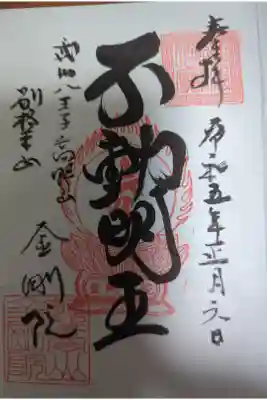 奉拝
令和五年正月元日
不動明王
武州八王子高野山
別格本山
金剛院